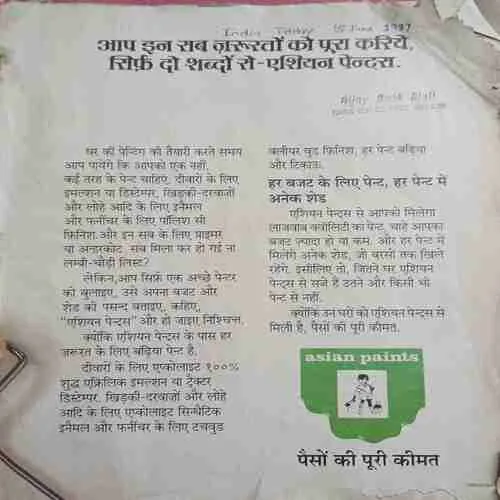 India Today 15 June 1987
आप इन सब ज़रूरतों को पूरा करिये,
सिर्फ़ दो शब्दों से-एशियन पेन्टस.
Vijay Book Stall
घर की पेन्टिंग की तैयारी करते समय
आप पायेंगे कि आपको एक नहीं,
कई तरह के पेन्ट चाहिए. दीवारों के लिए
इमल्शन या डिस्टेम्पर, खिड़की-दरवाजों
और लोहे आदि के लिए इनैमल
और फर्नीचर के लिए पॉलिश सी
फ़िनिश.और इन सब के लिए प्राइमर
या अन्डरकोट. सब मिला कर हो गई ना
लम्बी-चौड़ी लिस्ट?
लेकिन,आप सिर्फ़ एक अच्छे पेन्टर
को बुलाइए, उसे अपना बजट और
शेड की पसन्द बताइए, कहिए,
"एशियन पेन्ट्स" और हो जाइए निश्चिन्त.
क्योंकि एशियन पेन्ट्स के पास हर
ज़रूरत के लिए बढ़िया पेन्ट है.
दीवारों के लिए एप्कोलाइट १००%
शुद्ध एक्रिलिक इमल्शन या ट्रैक्टर
डिस्टेम्पर. खिड़की-दरवाजों और लोहे
आदि के लिए एप्कोलाइट सिन्थैटिक
इनैमल और फर्नीचर के लिए टचवुड
क्लीयर वुड फ़िनिश, हर पेन्ट बढ़िया
और टिकाऊ.
हर बजट के लिए पेन्ट, हर पेन्ट में
अनेक शेड
एशियन पेन्ट्स से आपको मिलेगा
लाजवाब क्वॉलिटी का पेन्ट, चाहे आपका
बजट ज़्यादा हो या कम. और हर पेन्ट में
मिलेंगे अनेक शेड, जो बरसों तक खिले
रहेंगे. इसीलिए तो, जितने घर एशियन
पेन्ट्स से सजे हैं उतने और किसी भी
पेन्ट से नहीं.
क्योंकि उन घरों को एशियन पेन्ट्स से
मिली है, पैसों की पूरी कीमत.
asian paints
पैसों की पूरी कीमत